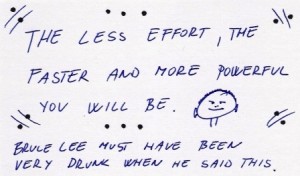 THE LESS EFFORT, THE
FASTER AND MORE POWERFUL
YOU WILL BE.
BRUCE LEE MUST HAVE BEEN
VERY DRUNK WHEN HE SAID THIS.